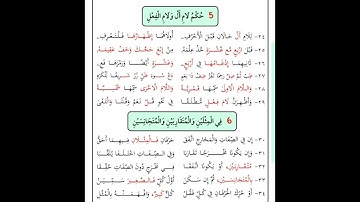 5 حُكْمُ لَامِ أَلْ وَلَامِ الْفِعْلِ
٢٤- لِلَامِ أَلْ حَالَانِ قَبْلَ الْأَحْرُفِ أُولَاهُمَا إِظْهَارُهَا فَلْتَعْرِفِ
٢٥- قَبْلَ ارْبَعٍ مَعْ عَشْرَةٍ خُذْ عِلْمَهُ مِنْ إِبْغِ حَجَّكَ وَخَفْ عَقِيمَهُ
٢٦- ثَانِيهِمَا إِدْغَامُهَا فِي أَرْبَعِ وَعَشْرَةٍ أَيْضًا وَرَمْزَهَا فَعِ
٢٧- طِبْ ثُمَّ صِلْ رُحْمًا تَفُزْ ضِفْ ذَا نِعَمْ دَعْ سُوءَ ظَنٍّ زُرْ شَرِيفًا لِلْكَرَمْ
٢٨- وَاللَّامَ الُاولَى سَمِّهَا قَمْرِيَّهْ وَاللَّامَ الُاخْرَى سَمِّهَا شَمْسِيَّهْ
٢٩- وَأَظْهِرَنَّ لَامَ فِعْلٍ مُطْلَقَا فِي نَحْوِ قُلْ نَعَمْ وَقُلْنَا وَالْتَقَى
6 فِي الْمِثْلَيْنِ وَالْمُتَقَارِبَيْنِ وَالْمُتَجَانِسَيْنِ
٣٠- إِنْ فِي الصِّفَاتِ وَالْمَخَارِجِ اتَّفَقْ حَرْفَانِ فَالْمِثْلَانِ فِيهِمَا أَحَقْ
٣١- وَإِنْ يَكُونَا مَخْرَجًا تَقَارَبَا وَفِي الصِّفَاتِ اخْتَلَفَا يُلَقَّبَا
٣٢- مُتَقَارِبَيْنِ أَوْ يَكُونَا اتَّفَقَا فِي مَخْرَجٍ دُونَ الصِّفَاتِ حُقِّقَا
٣٣- بِالْمُتَجَانِسَيْنِ ثُمَّ إِنْ سَكَنْ أَوَّلُ كُلٍّ فَالصَّغِيرَ سَمِّيَنْ
٣٤- أَوْ حُرِّكَ الْحَرْفَانِ فِي كُلٍّ فَقُلْ كُلٌّ كَبِيرٌ وَافْهَمَنْهُ بِالْمُثُلْ